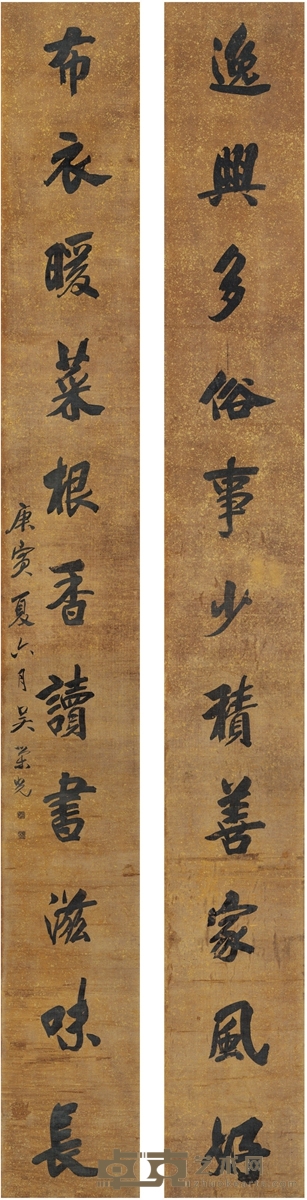 逸興多俗事少積善家風好
布衣暖菜根香讀書滋味長
庚寅夏六月吳榮光